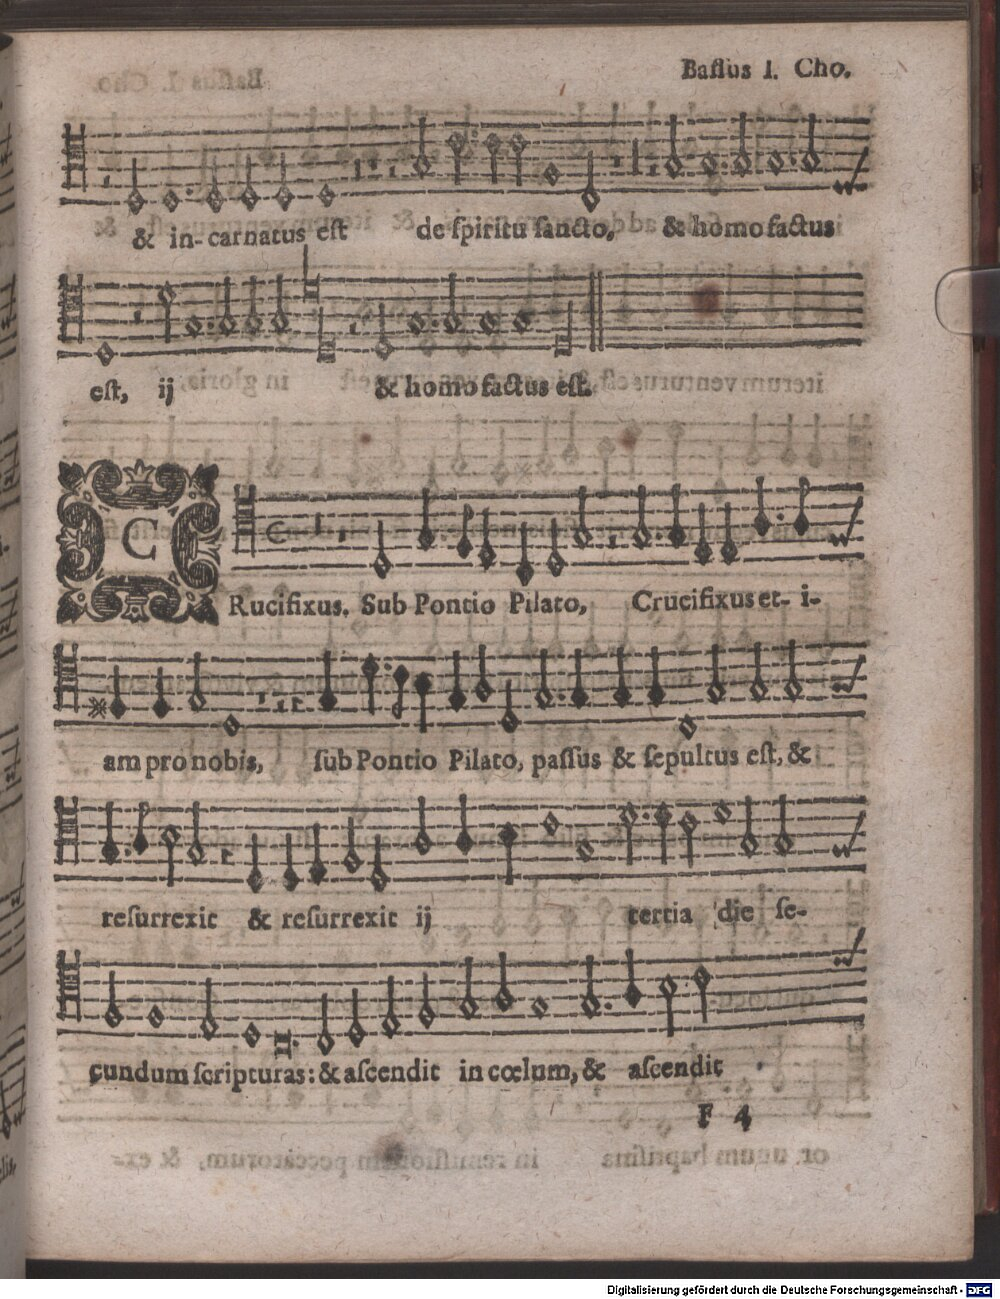 Baſſus I. Cho.
& in-carnatus eſt de ſpiritu ſancto, & homo factus
eſt, ij & homo factus eſt.
C
Rucifixus. Sub Pontio Pilato, Crucifixus et- i-
am pro nobis, ſub Pontio Pilato, paſſus & ſepultus eſt, &
reſurrexit & reſurrexit ij tertia die ſe-
cundum ſcripturas: & aſcendit in cœlum, & aſcendit
F 4
Digitalisierung gefördert durch die Deutsche Forschungsgemeinschaft - DFG